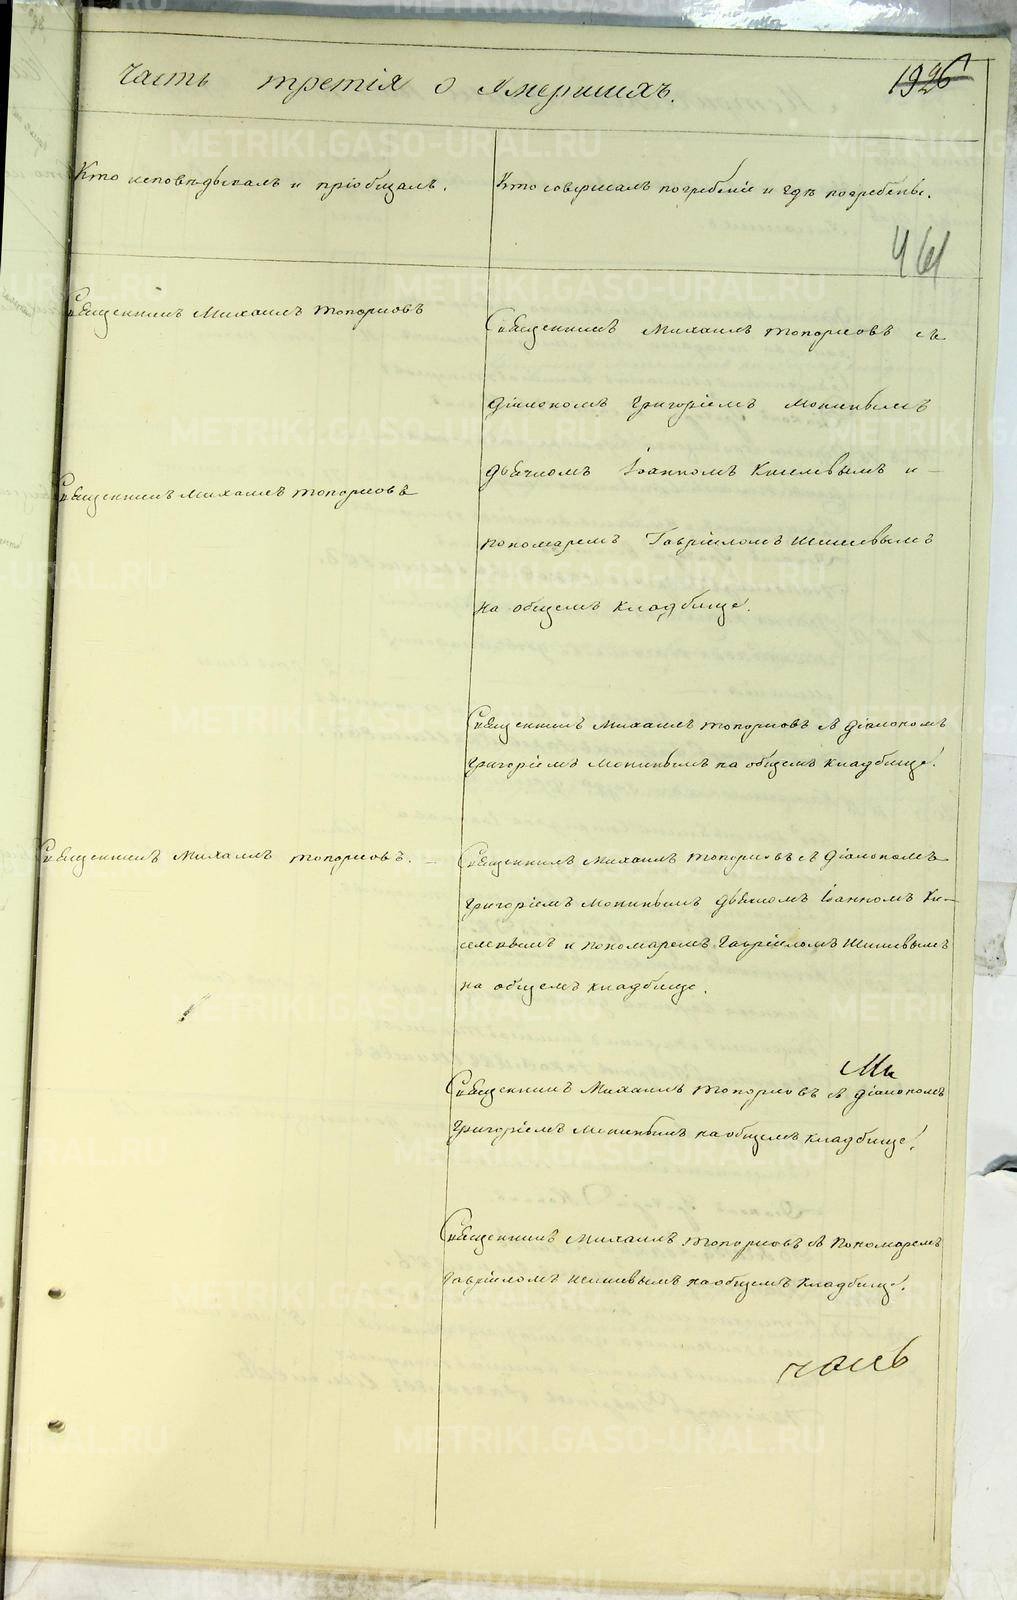 Часть третія о Умершихъ.
1926
Кто исповѣдывалъ и пріобщалъ.
Кто совершалъ погребеніе и гдѣ погребены.
461
Священникъ Михаилъ Топорковъ
Священникъ Михаилъ Топорковъ съ
діакономъ Григоріемъ
дьячкомъ Іоанномъ Киселевымъ и
пономаремъ Гавріиломъ Шишевымъ
на общемъ кладбище.
Священникъ Михаилъ Топорковъ
Священникъ Михаилъ Топорковъ съ діакономъ
Григоріемъ на общемъ кладбище.
Священникъ Михаилъ Топорковъ.
Священникъ Михаилъ Топорковъ съ діакономъ
Григоріемъ дьячкомъ Іоанномъ Ки-
селевымъ и пономаремъ Гавріиломъ Шишевымъ
на общемъ кладбище.
Священникъ Михаилъ Топорковъ съ діакономъ
Григоріемъ на общемъ кладбище.
Священникъ Михаилъ Топорковъ съ Пономаремъ
Гавріиломъ Шишевымъ на общемъ кладбище.
METRIKI.GASO-URAL.RU